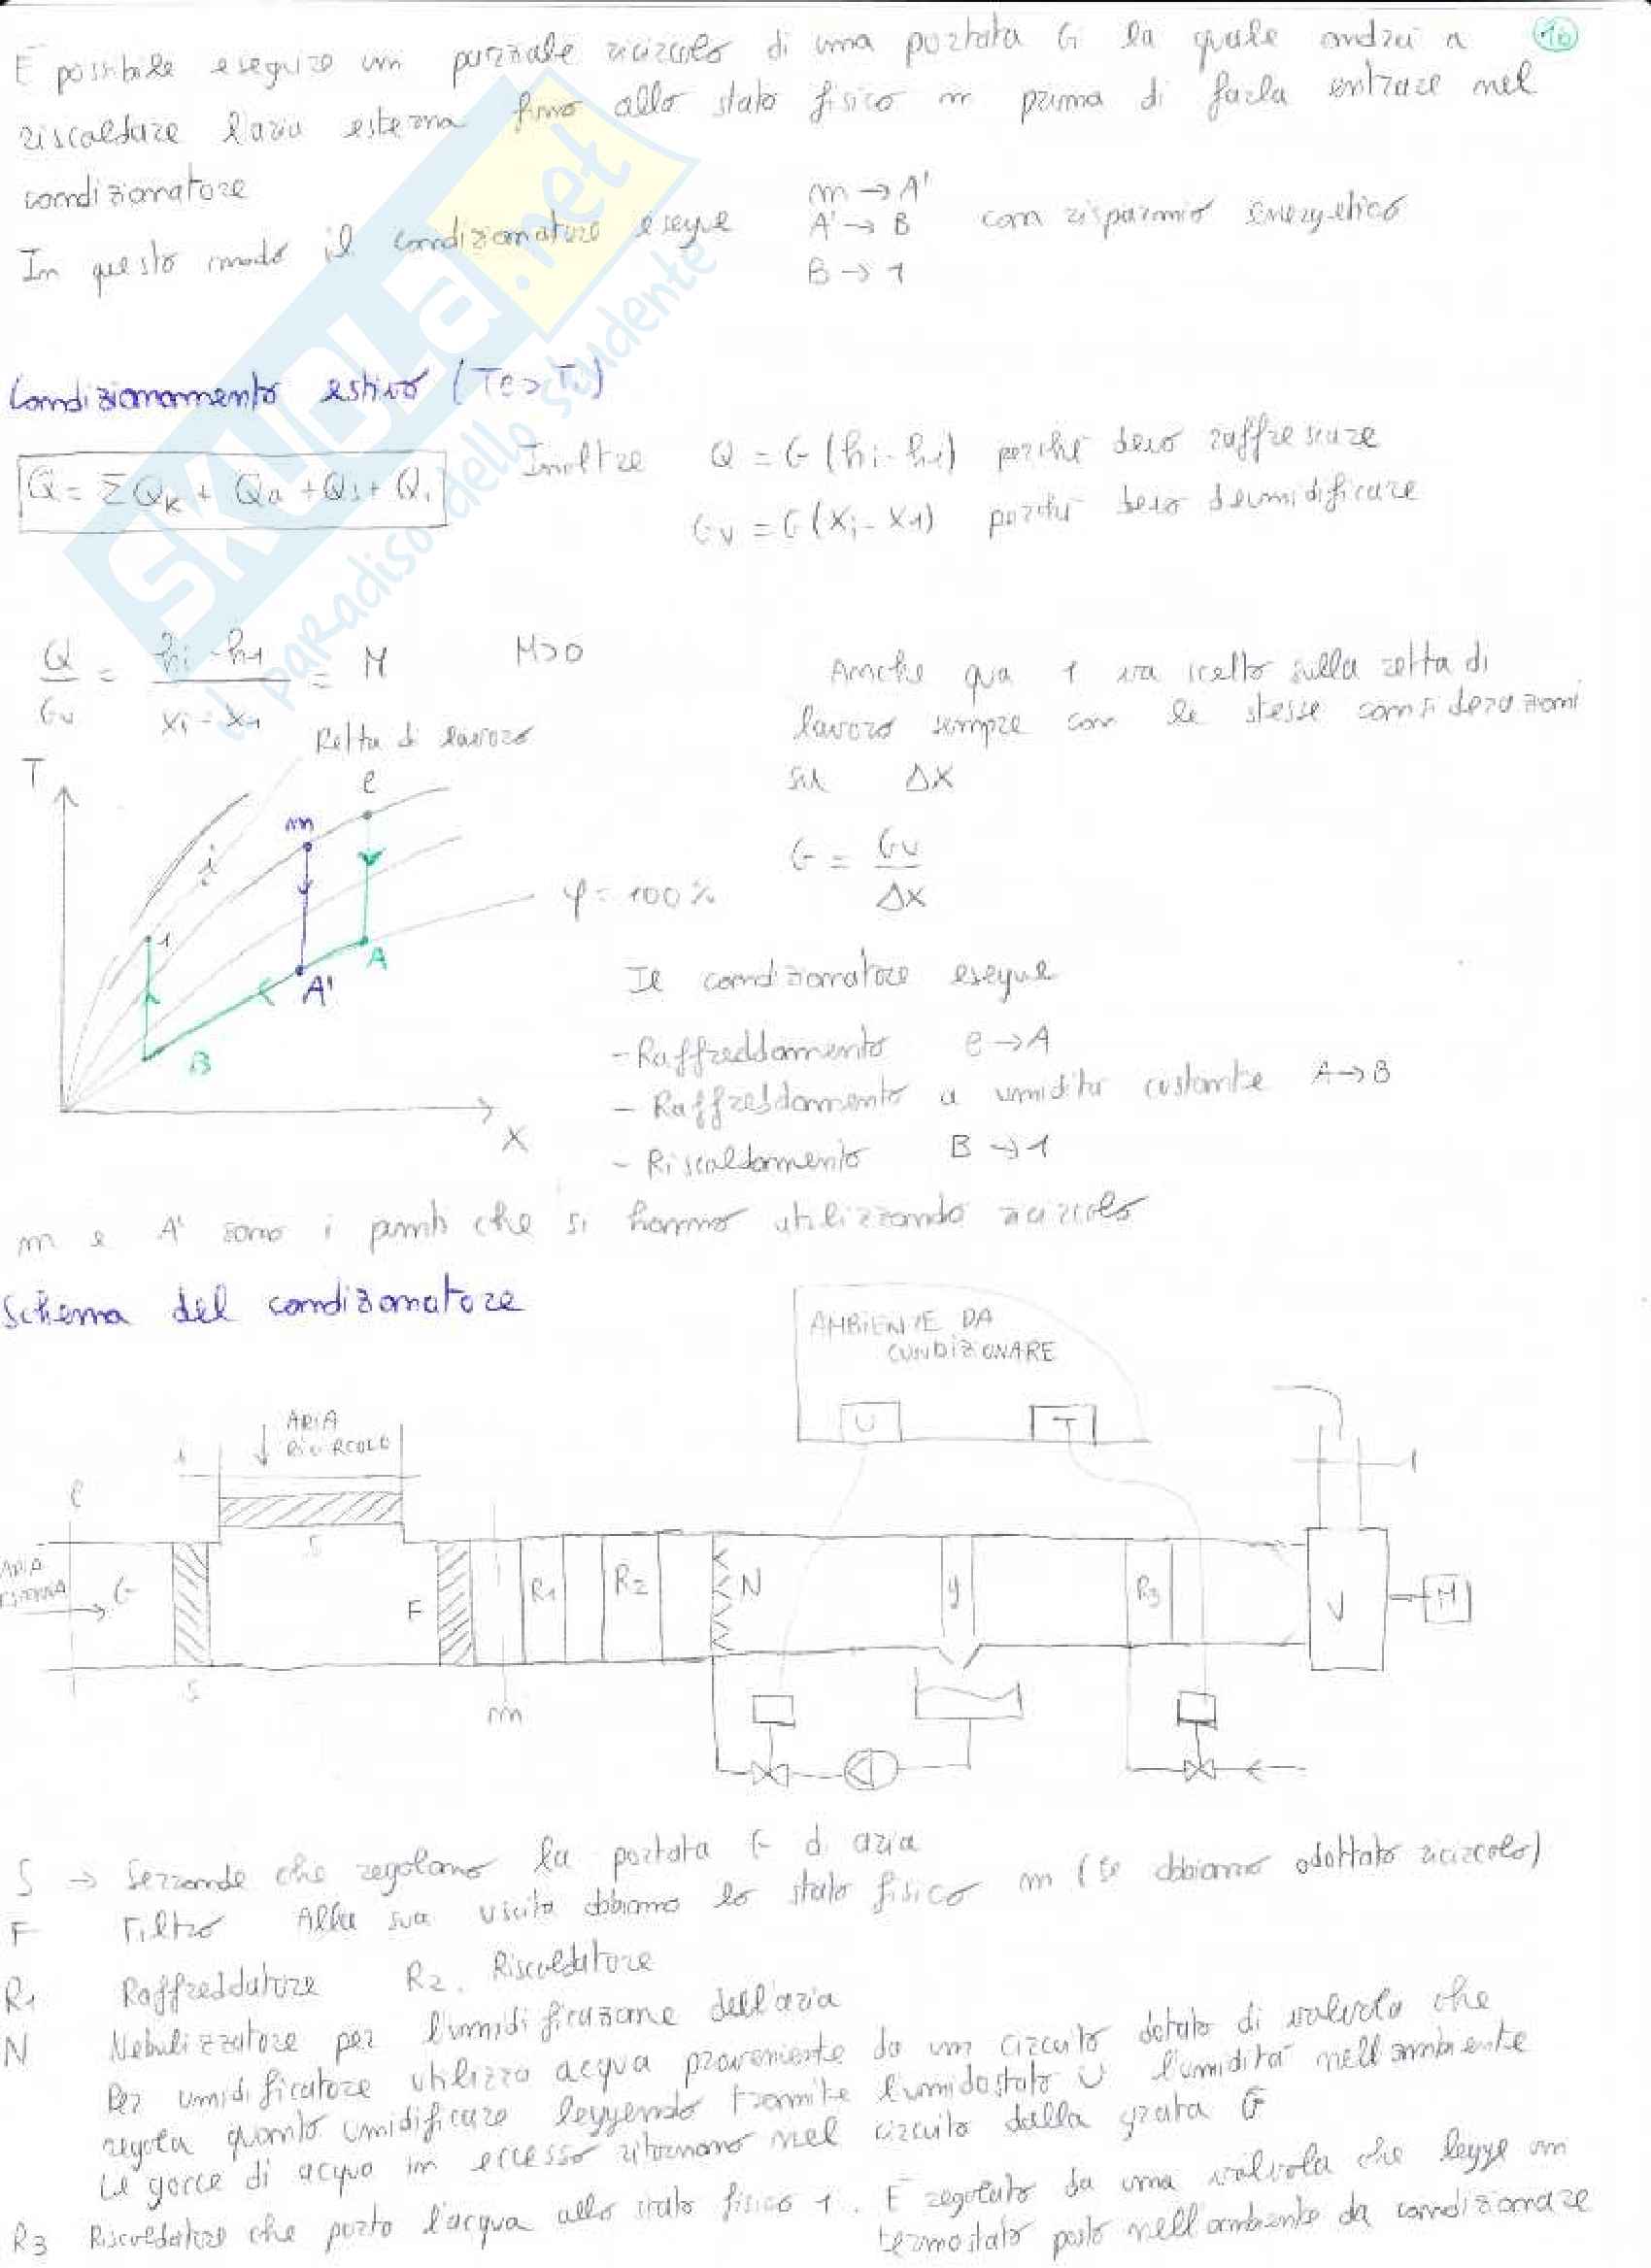 È possibile eseguire un parziale ricircolo di una portata G la quale andrà a
10
riscaldare l'aria esterna fino allo stato fisico m prima di farla entrare nel
condizionatore
In questo modo il condizionatore esegue
m → A'
A' → B con risparmio energetico
B → 1
SKUOLA.net
il paradiso dello studente
Condizionamento estivo (Te>Ti)
Q = ΣQk + Qa + Qs + Qi
Inoltre Q = G (hi - h1) perché devo raffrescare
Gv = G (xi - x1) perché devo deumidificare
Q/Gv = (hi - h1)/(xi - x1) = M M>0
Anche qua 1 va scelto sulla retta di
lavoro sempre con le stesse considerazioni
sul Δx
Retta di lavoro
T
e
m
i
1
A
A'
B
x
φ = 100%
G = Gv/Δx
Il condizionatore esegue
- Raffreddamento e → A
- Raffreddamento a umidità costante A → B
- Riscaldamento B → 1
m e A' sono i punti che si hanno utilizzando ricircolo
Schema del condizionatore
AMBIENTE DA
CONDIZIONARE
U T
ARIA
RICIRCOLO
i
e
ARIA
ESTERNA
G
S
S
F
m
R1
R2
N
g
R3
V
M
1
S → Serrande che regolano la portata G di aria
F Filtro Alla sua uscita abbiamo lo stato fisico m (se abbiamo adottato ricircolo)
R1 Raffreddatore R2. Riscaldatore
N Nebulizzatore per l'umidificazione dell'aria
Per umidificatore utilizzo acqua proveniente da un circuito dotato di valvola che
regola quanto umidificare leggendo tramite l'umidostato U l'umidità nell'ambiente
Le gocce di acqua in eccesso ritornano nel circuito dalla grata
R3 Riscaldatore che porta l'acqua allo stato fisico 1. È regolato da una valvola che legge un
termostato posto nell'ambiente da condizionare